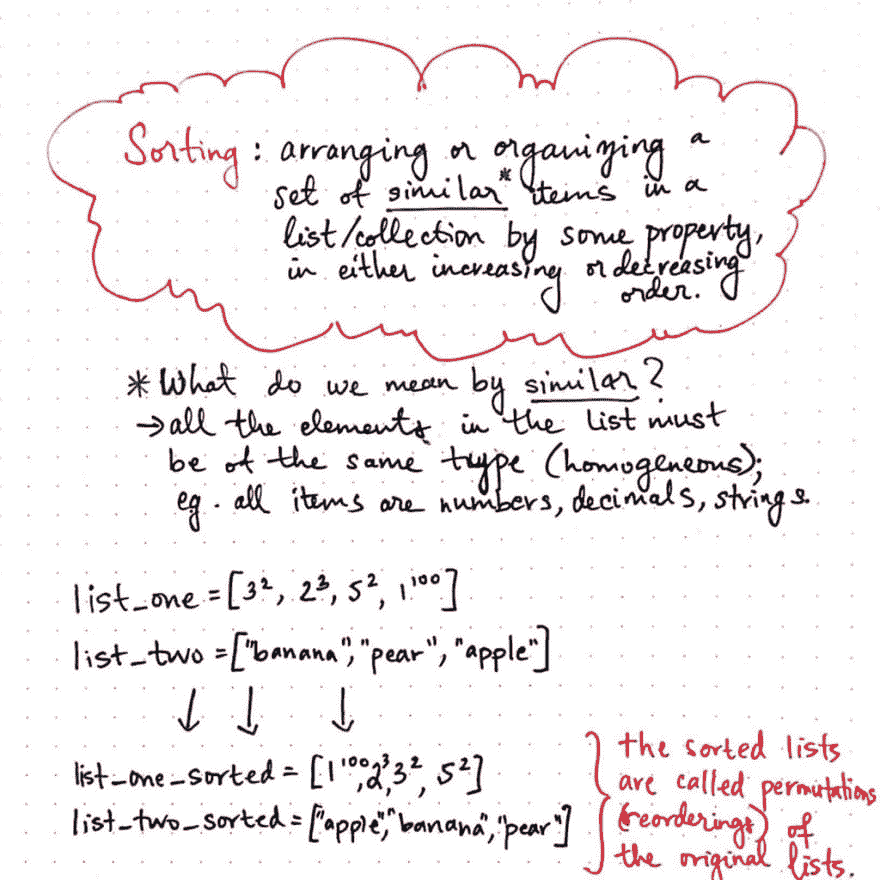 Sorting : arranging or organizing a
set of similar* items in a
list/collection by some property,
in either increasing or decreasing
order.
* What do we mean by similar?
→ all the elements in the list must
be of the same type (homogeneous);
eg. all items are numbers, decimals, strings.
list_one = [3², 2³, 5², 1¹⁰⁰]
list_two = ["banana", "pear", "apple"]
↓ ↓ ↓
list_one_sorted = [1¹⁰⁰, 2³, 3², 5²]
list_two_sorted = ["apple", "banana", "pear"]
the sorted lists
are called permutations
(reorderings) of
the original lists.